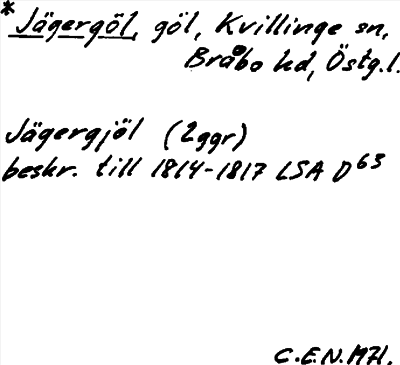 * Jägergöl, göl, Kvillinge sn,
Bråbo hd, Östg.l.
Jägergjöl (2ggr)
beskr. till 1814-1817 LSA D63
C.E.N.MH.